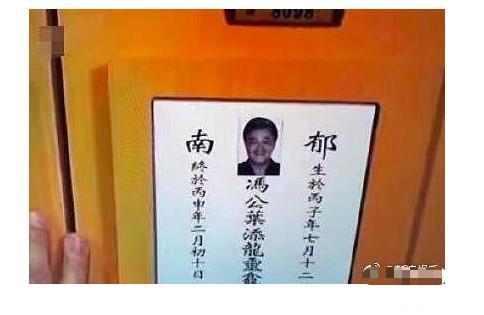 8098
郁南
生於丙子年七月十二
馮公葉添龍靈
終於丙申年二月初十日